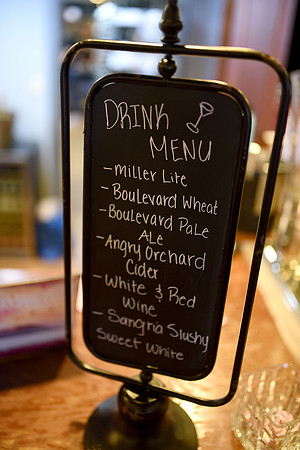 DRINK
MENU
- Miller Lite
- Boulevard Wheat
- Boulevard Pale
Ale
- Angry Orchard
Cider
- White & Red
Wine
- Sangria Slushy
Sweet White